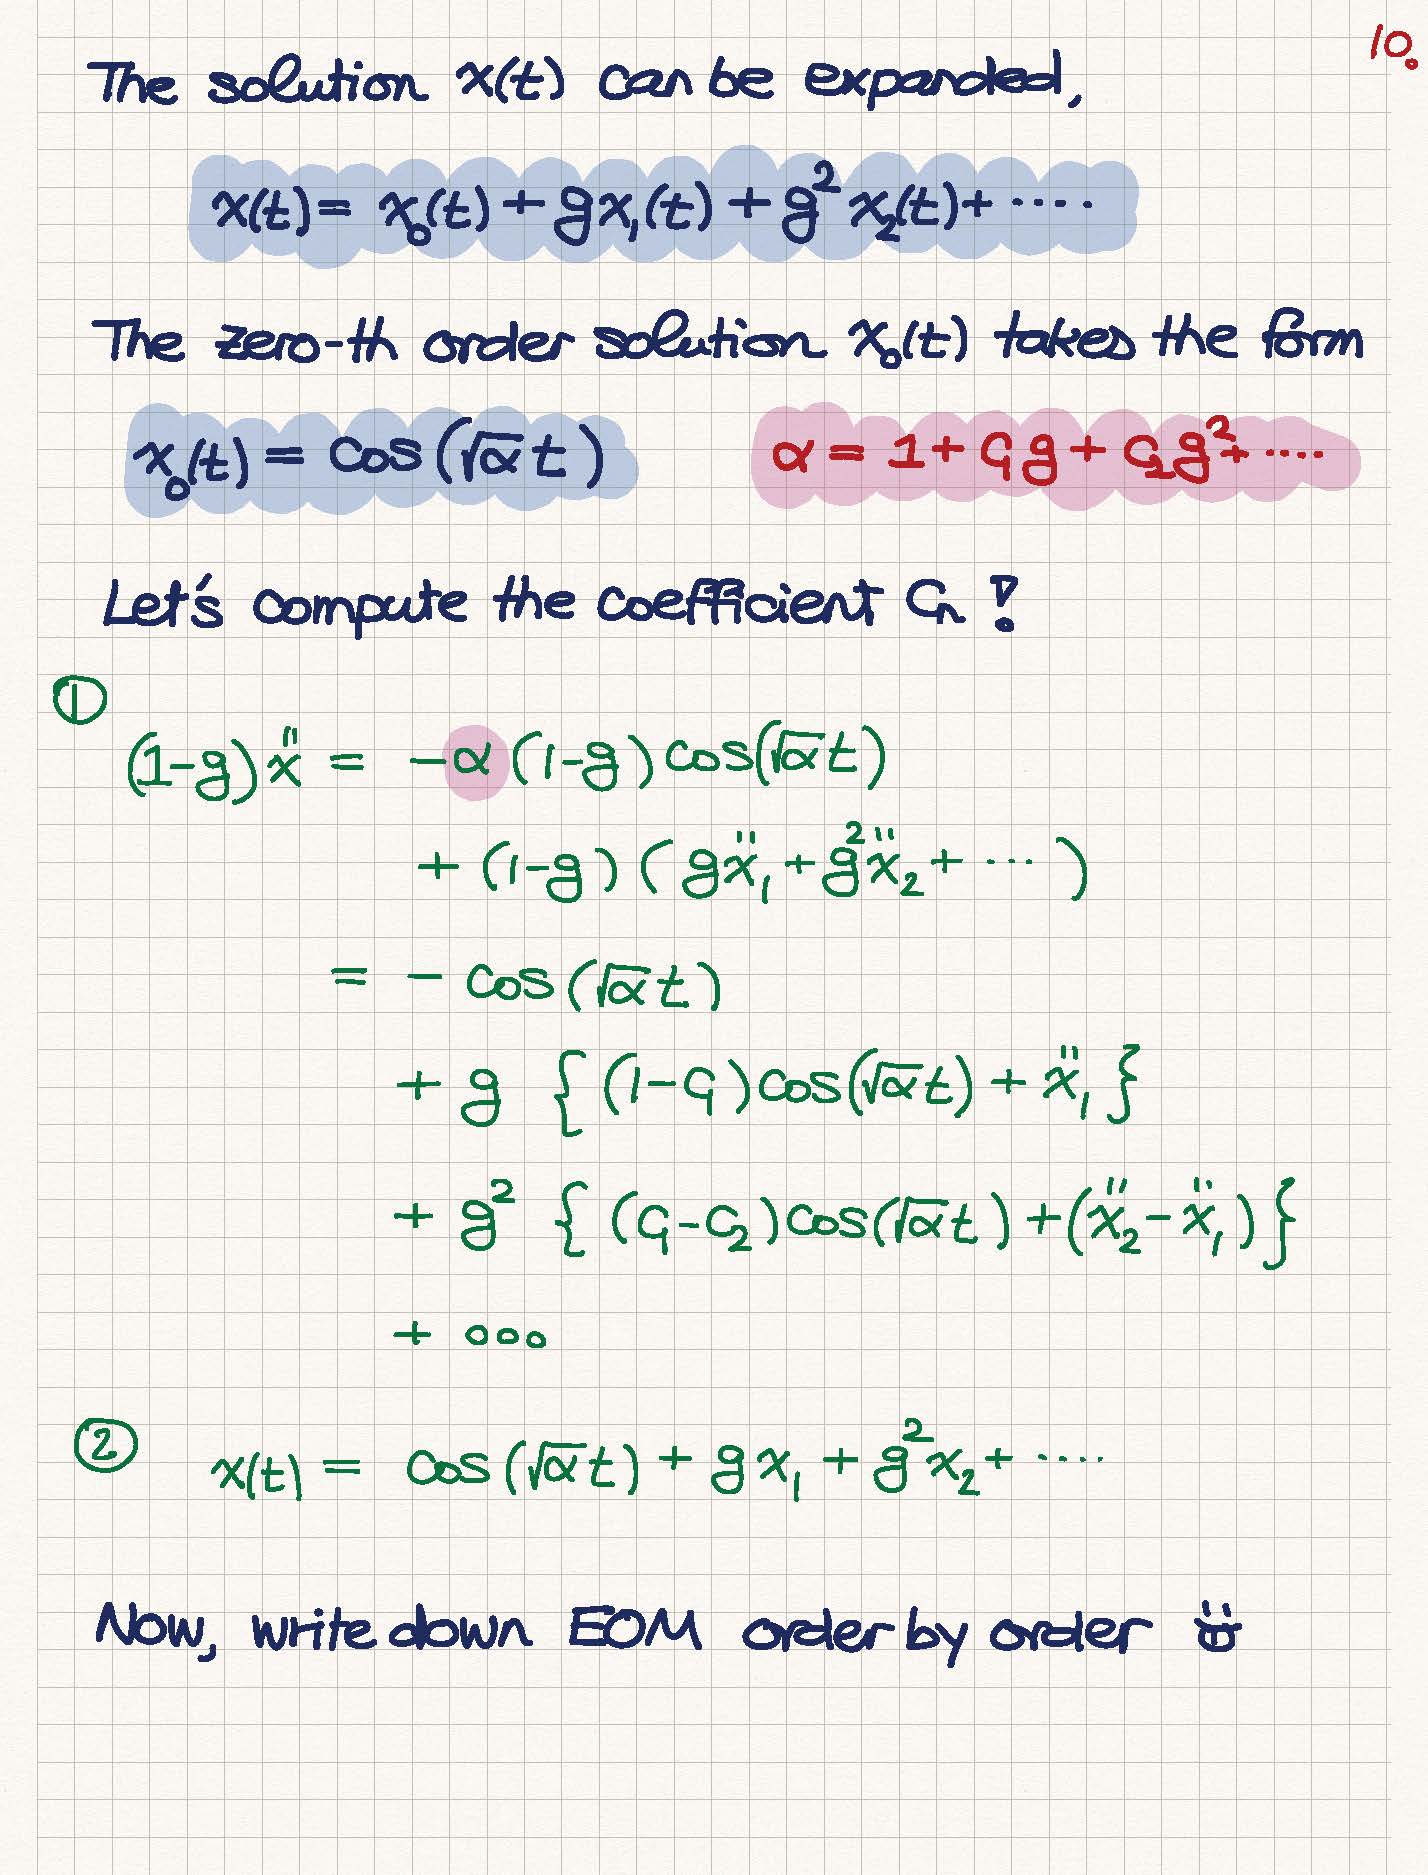 10.
The solution x(t) can be expanded,
x(t) = x₀(t) + g x₁(t) + g² x₂(t) + ·····
The zero-th order solution x₀(t) takes the form
x₀(t) = cos(√α t)    α = 1 + C₁g + C₂g² + ·····
Let's compute the coefficient Cₙ!
①
(1-g)ẍ = -α (1-g) cos(√α t)
+ (1-g) ( gẍ₁ + g²ẍ₂ + ··· )
= - cos(√α t)
+ g { (1-C₁) cos(√α t) + ẍ₁ }
+ g² { (C₁-C₂) cos(√α t) + (ẍ₂ - ẍ₁) }
+ ∘∘∘
② x(t) = cos(√α t) + g x₁ + g² x₂ + ·····
Now, write down EOM order by order ☺